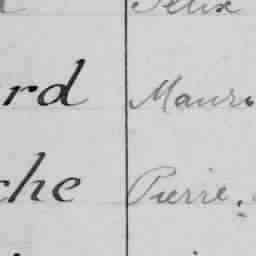 Felix
rd Mauri
che Pierre.